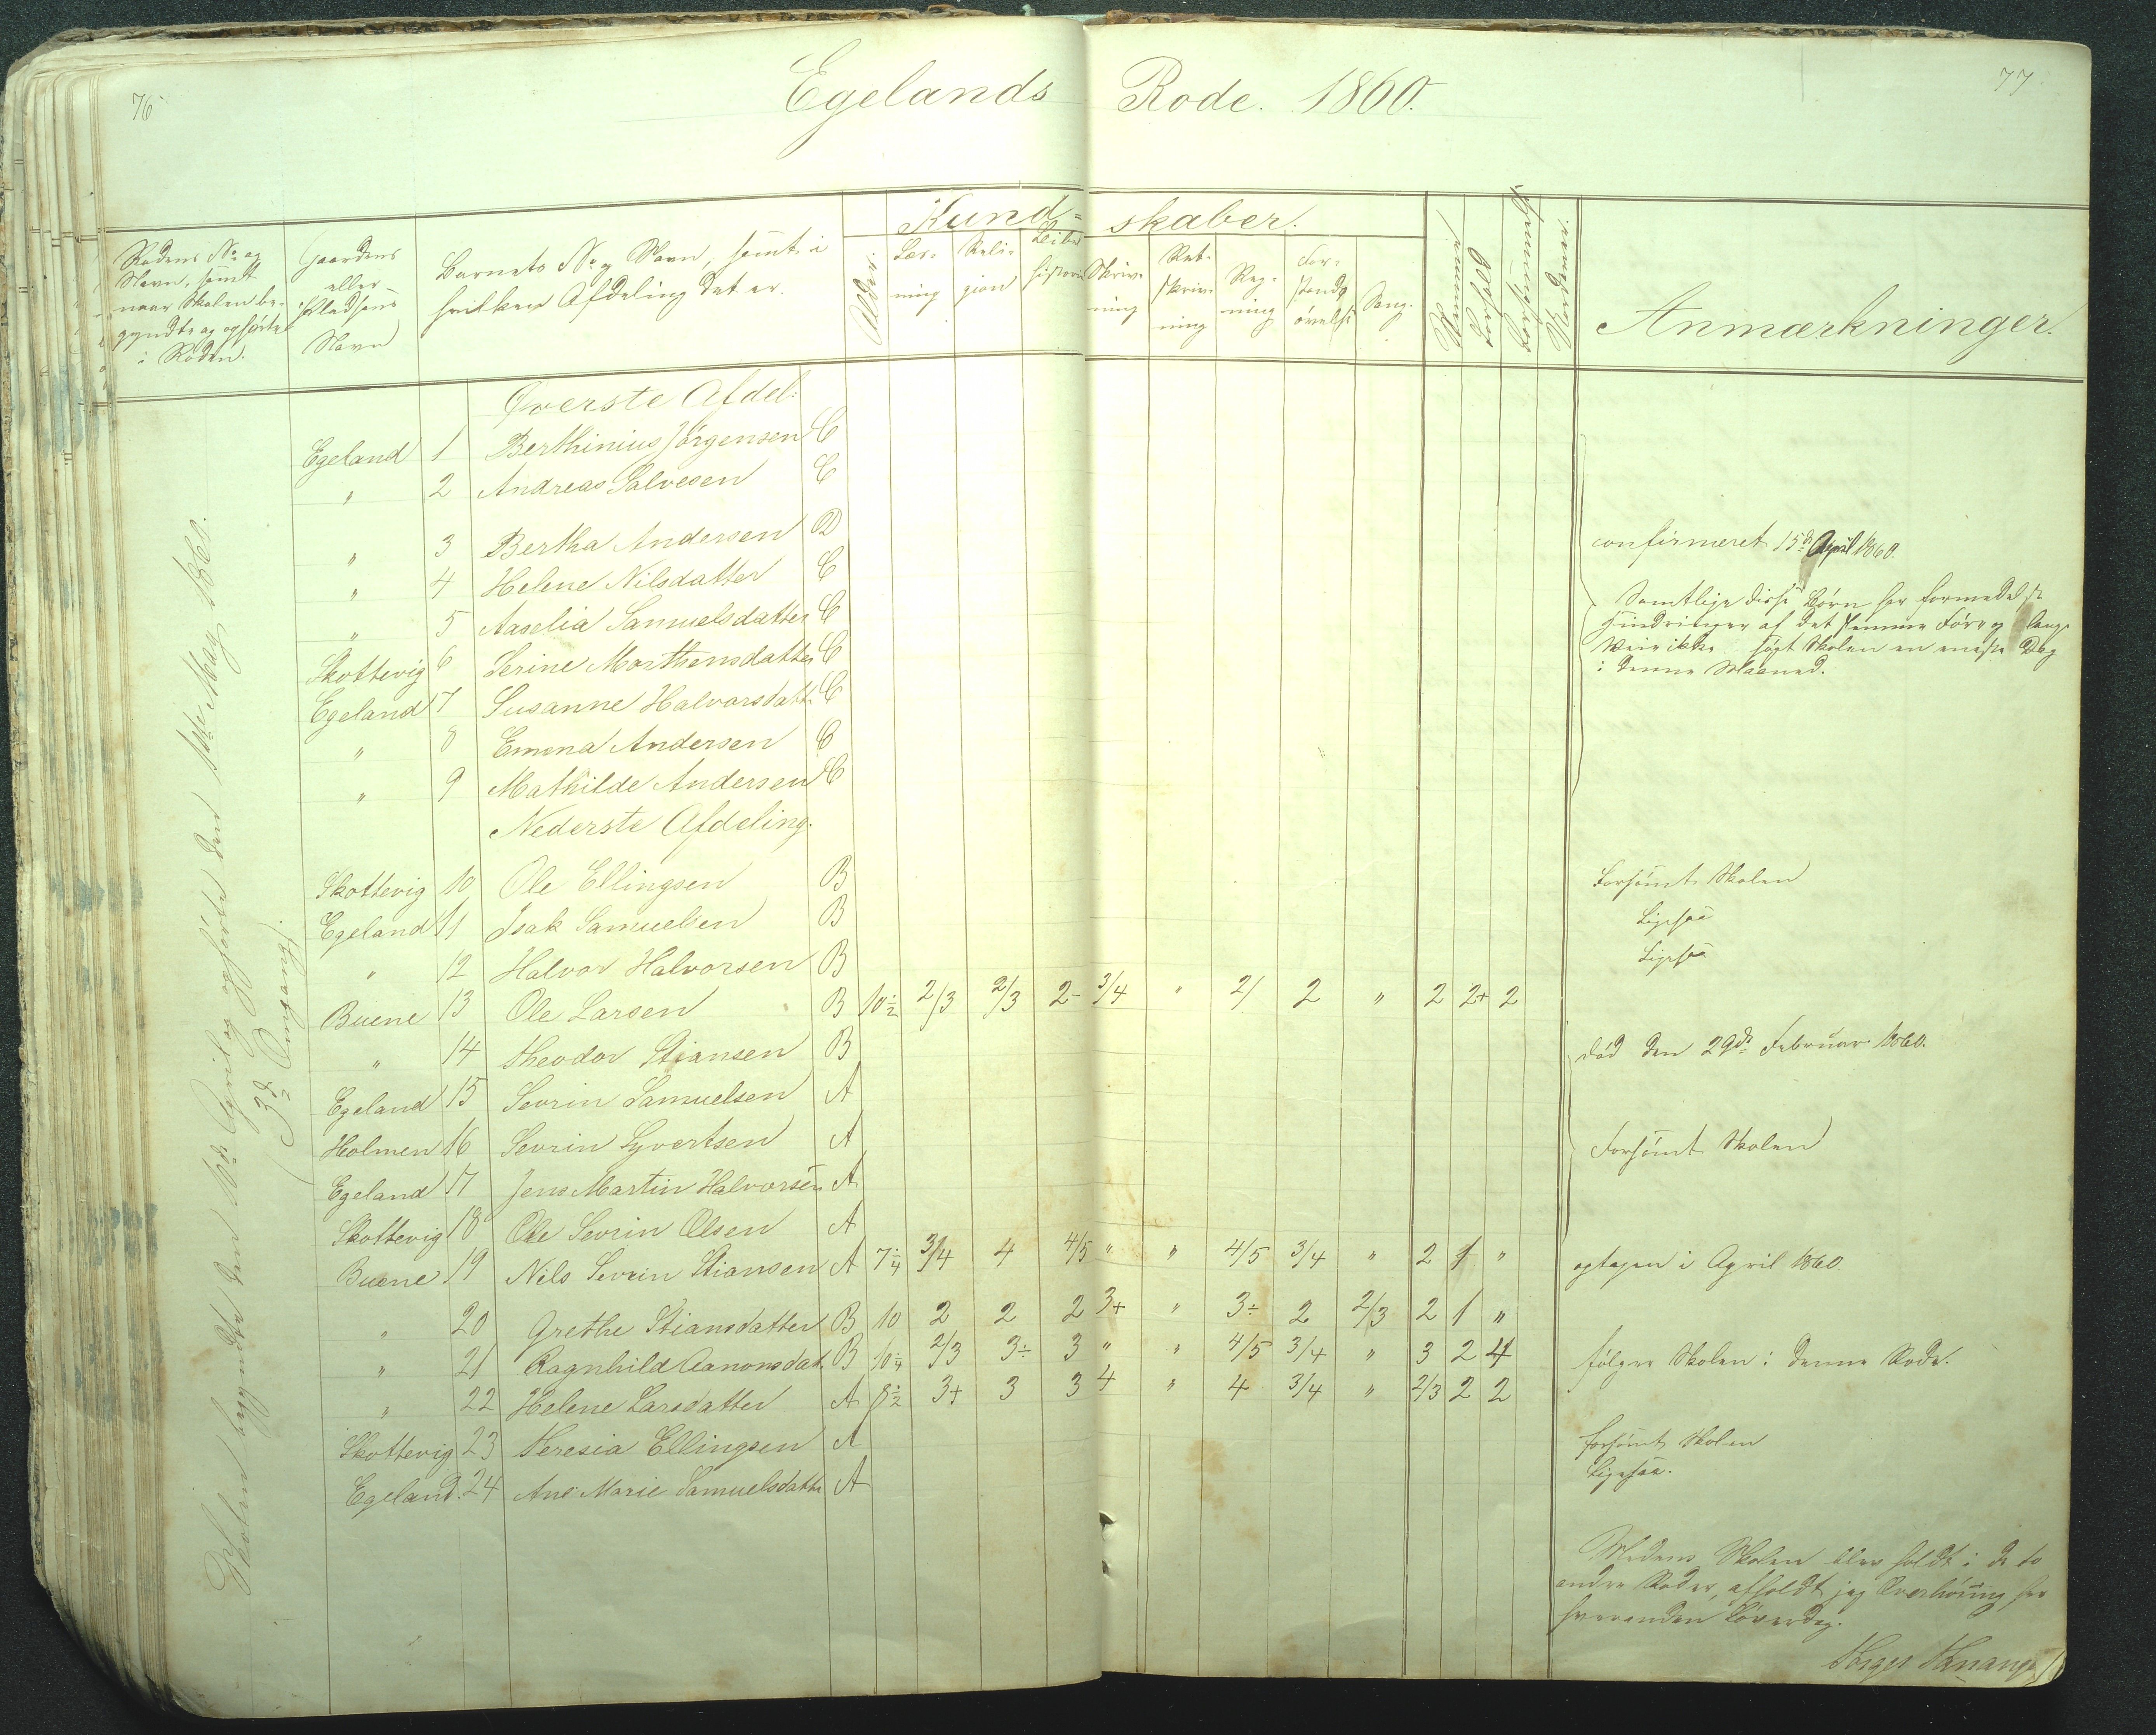 76
Egelands Rode. 1860.
77
Rodens No og
Navn, samt
naar Skolen be-
gyndte og ophørte
i Roden.
Gaardens
eller
Pladsens
Navn
Barnets No og Navn, samt i
hvilken Afdeling det er.
Alder.
Kund-skaber.
Læs-
ning
Reli-
gion
Bibel
historie
Skriv-
ning
Ret-
skriv-
ning
Reg-
ning
For-
stands
øvelse
Sang.
Nemme
Forhold
Forsømmelse
Anmærkninger.
Skolen begyndte den 16de April og ophørte den 1ste May 1860.
(3de Omgang).
Øverste Afdel:
Egeland 1 Berthinius Jörgensen C
" 2 Andreas Salvesen C
" 3 Bertha Andersen D confirmeret 15de April 1860.
" 4 Helene Nilsdatter C
" 5 Aaselia Samuelsdatter C
Skottevig 6 Serine Marthensdatter C
Egeland 7 Susanne Halvorsdatt. C
" 8 Emma Andersen C
" 9 Mathilde Andersen C
Samtlige disse Børn har formedelst
Hindringer af det slemme Føre og lange
Vei ikke søgt Skolen en eneste Dag
i denne Maaned.
Nederste Afdeling.
Skottevig 10 Ole Ellingsen B Forsømt Skolen
Egeland 11 Isak Samuelsen B Ligesaa
" 12 Halvor Halvorsen B Ligesaa
Buene 13 Ole Larsen B 10½ 2/3 2/3 2- 3/4 " 2/ 2 " 2 2+ 2
" 14 Theodor Stiansen B død den 29de Februar 1860.
Egeland 15 Sevrin Samuelsen A
Holmen 16 Sevrin Syvertsen A Forsømt Skolen
Egeland 17 Jens Martin Halvorsen A
Skottevig 18 Ole Sevrin Olsen A
Buene 19 Nils Sevrin Stiansen A 7¼ 3/4 4 4/5 " " 4/5 3/4 " 2 1 " optagen i April 1860.
" 20 Grethe Stiansdatter B 10 2 2 2 3+ " 3÷ 2 2/3 2 1 "
" 21 Ragnhild Aanonsdat B 10¼ 2/3 3÷ 3 " " 4/5 3/4 " 3 2 4 følger Skolen i denne Rode.
" 22 Helene Larsdatter A 8½ 3+ 3 3 4 " 4 3/4 " 2/3 2 2
Skottevig 23 Teresia Ellingsen A forsømt Skolen
Egeland. 24 Ane Marie Samuelsdattr A Ligesaa.
Medens Skolen blev holdt i de to
andre Roder, afholdt jeg Overhøring her
hveranden Løverdag.